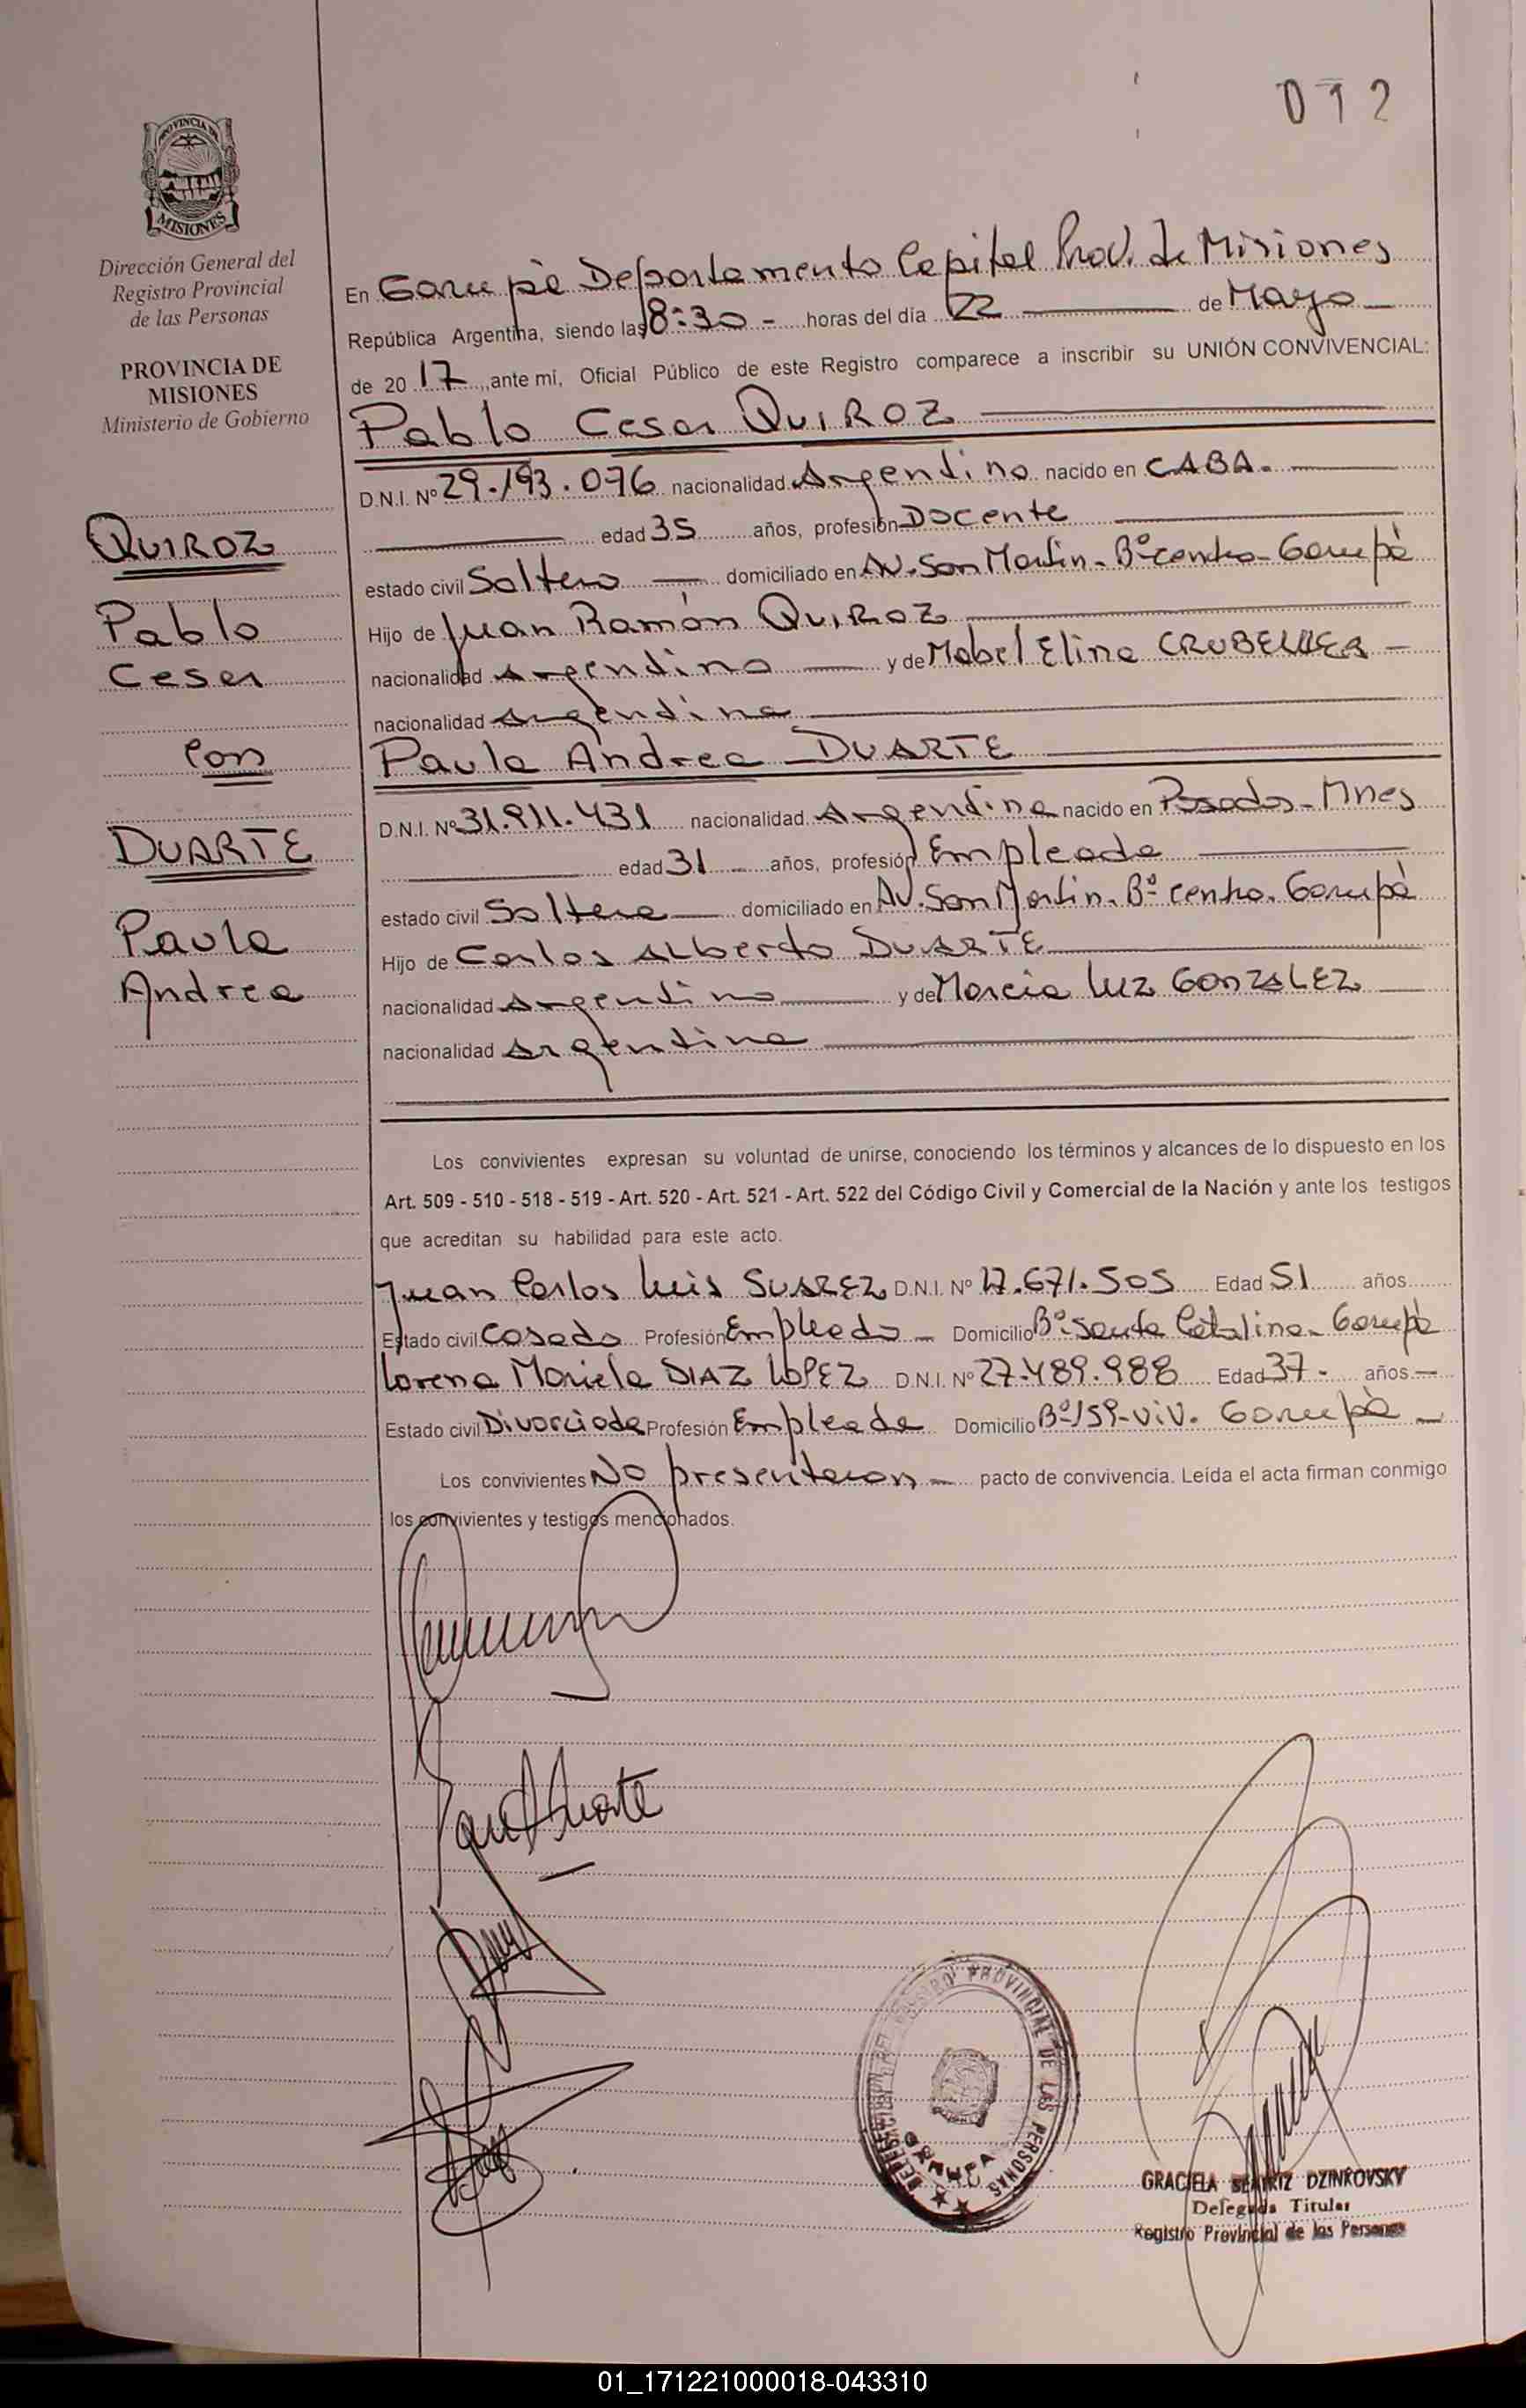 012
PROVINCIA DE
MISIONES
Dirección General del
Registro Provincial
de las Personas
PROVINCIA DE
MISIONES
Ministerio de Gobierno
QUIROZ
Pablo
Cesar
Con
DUARTE
Paula
Andrea
En Garupà Departamento Capital Prov. de Misiones
República Argentina, siendo las 8:30 - horas del día 22 de Mayo
de 2017, ante mí, Oficial Público de este Registro comparece a inscribir su UNIÓN CONVIVENCIAL:
Pablo Cesar QUIROZ
D.N.I. Nº 29.193.076 nacionalidad Argentino nacido en CABA.
edad 35 años, profesión Docente
estado civil Soltero domiciliado en AV. San Martin - Bº centro - Garupà
Hijo de Juan Ramón QUIROZ
nacionalidad Argentino y de Mabel Elina
nacionalidad Argentina
Paula Andrea DUARTE
D.N.I. Nº 31.911.431 nacionalidad Argentina nacido en Posadas - Mnes
edad 31 años, profesión Empleada
estado civil Soltera domiciliado en AV. San Martin. Bº centro. Garupà
Hijo de Carlos Alberto DUARTE
nacionalidad Argentino y de Marcia Luz GONZALEZ
nacionalidad Argentina
Los convivientes expresan su voluntad de unirse, conociendo los términos y alcances de lo dispuesto en los
Art. 509 - 510 - 518 - 519 - Art. 520 - Art. 521 - Art. 522 del Código Civil y Comercial de la Nación y ante los testigos
que acreditan su habilidad para este acto.
Juan Carlos Luis SUAREZ D.N.I. Nº 17.671.505 Edad 51 años
Estado civil Casado Profesión Empleado - Domicilio Bº Santa Catalina - Garupà
Lorena Mariela DIAZ LOPEZ D.N.I. Nº 27.489.988 Edad 37 - años
Estado civil Divorciada Profesión Empleada Domicilio Bº 159 - Viv. Garupà -
Los convivientes No presentaron - pacto de convivencia. Leída el acta firman conmigo
los convivientes y testigos mencionados.
REGISTRO PROVINCIAL DE LAS PERSONAS
GARUPA
GRACIELA BEATRIZ DZINKOVSKY
Delegada Titular
Registro Provincial de las Personas
01_171221000018-043310